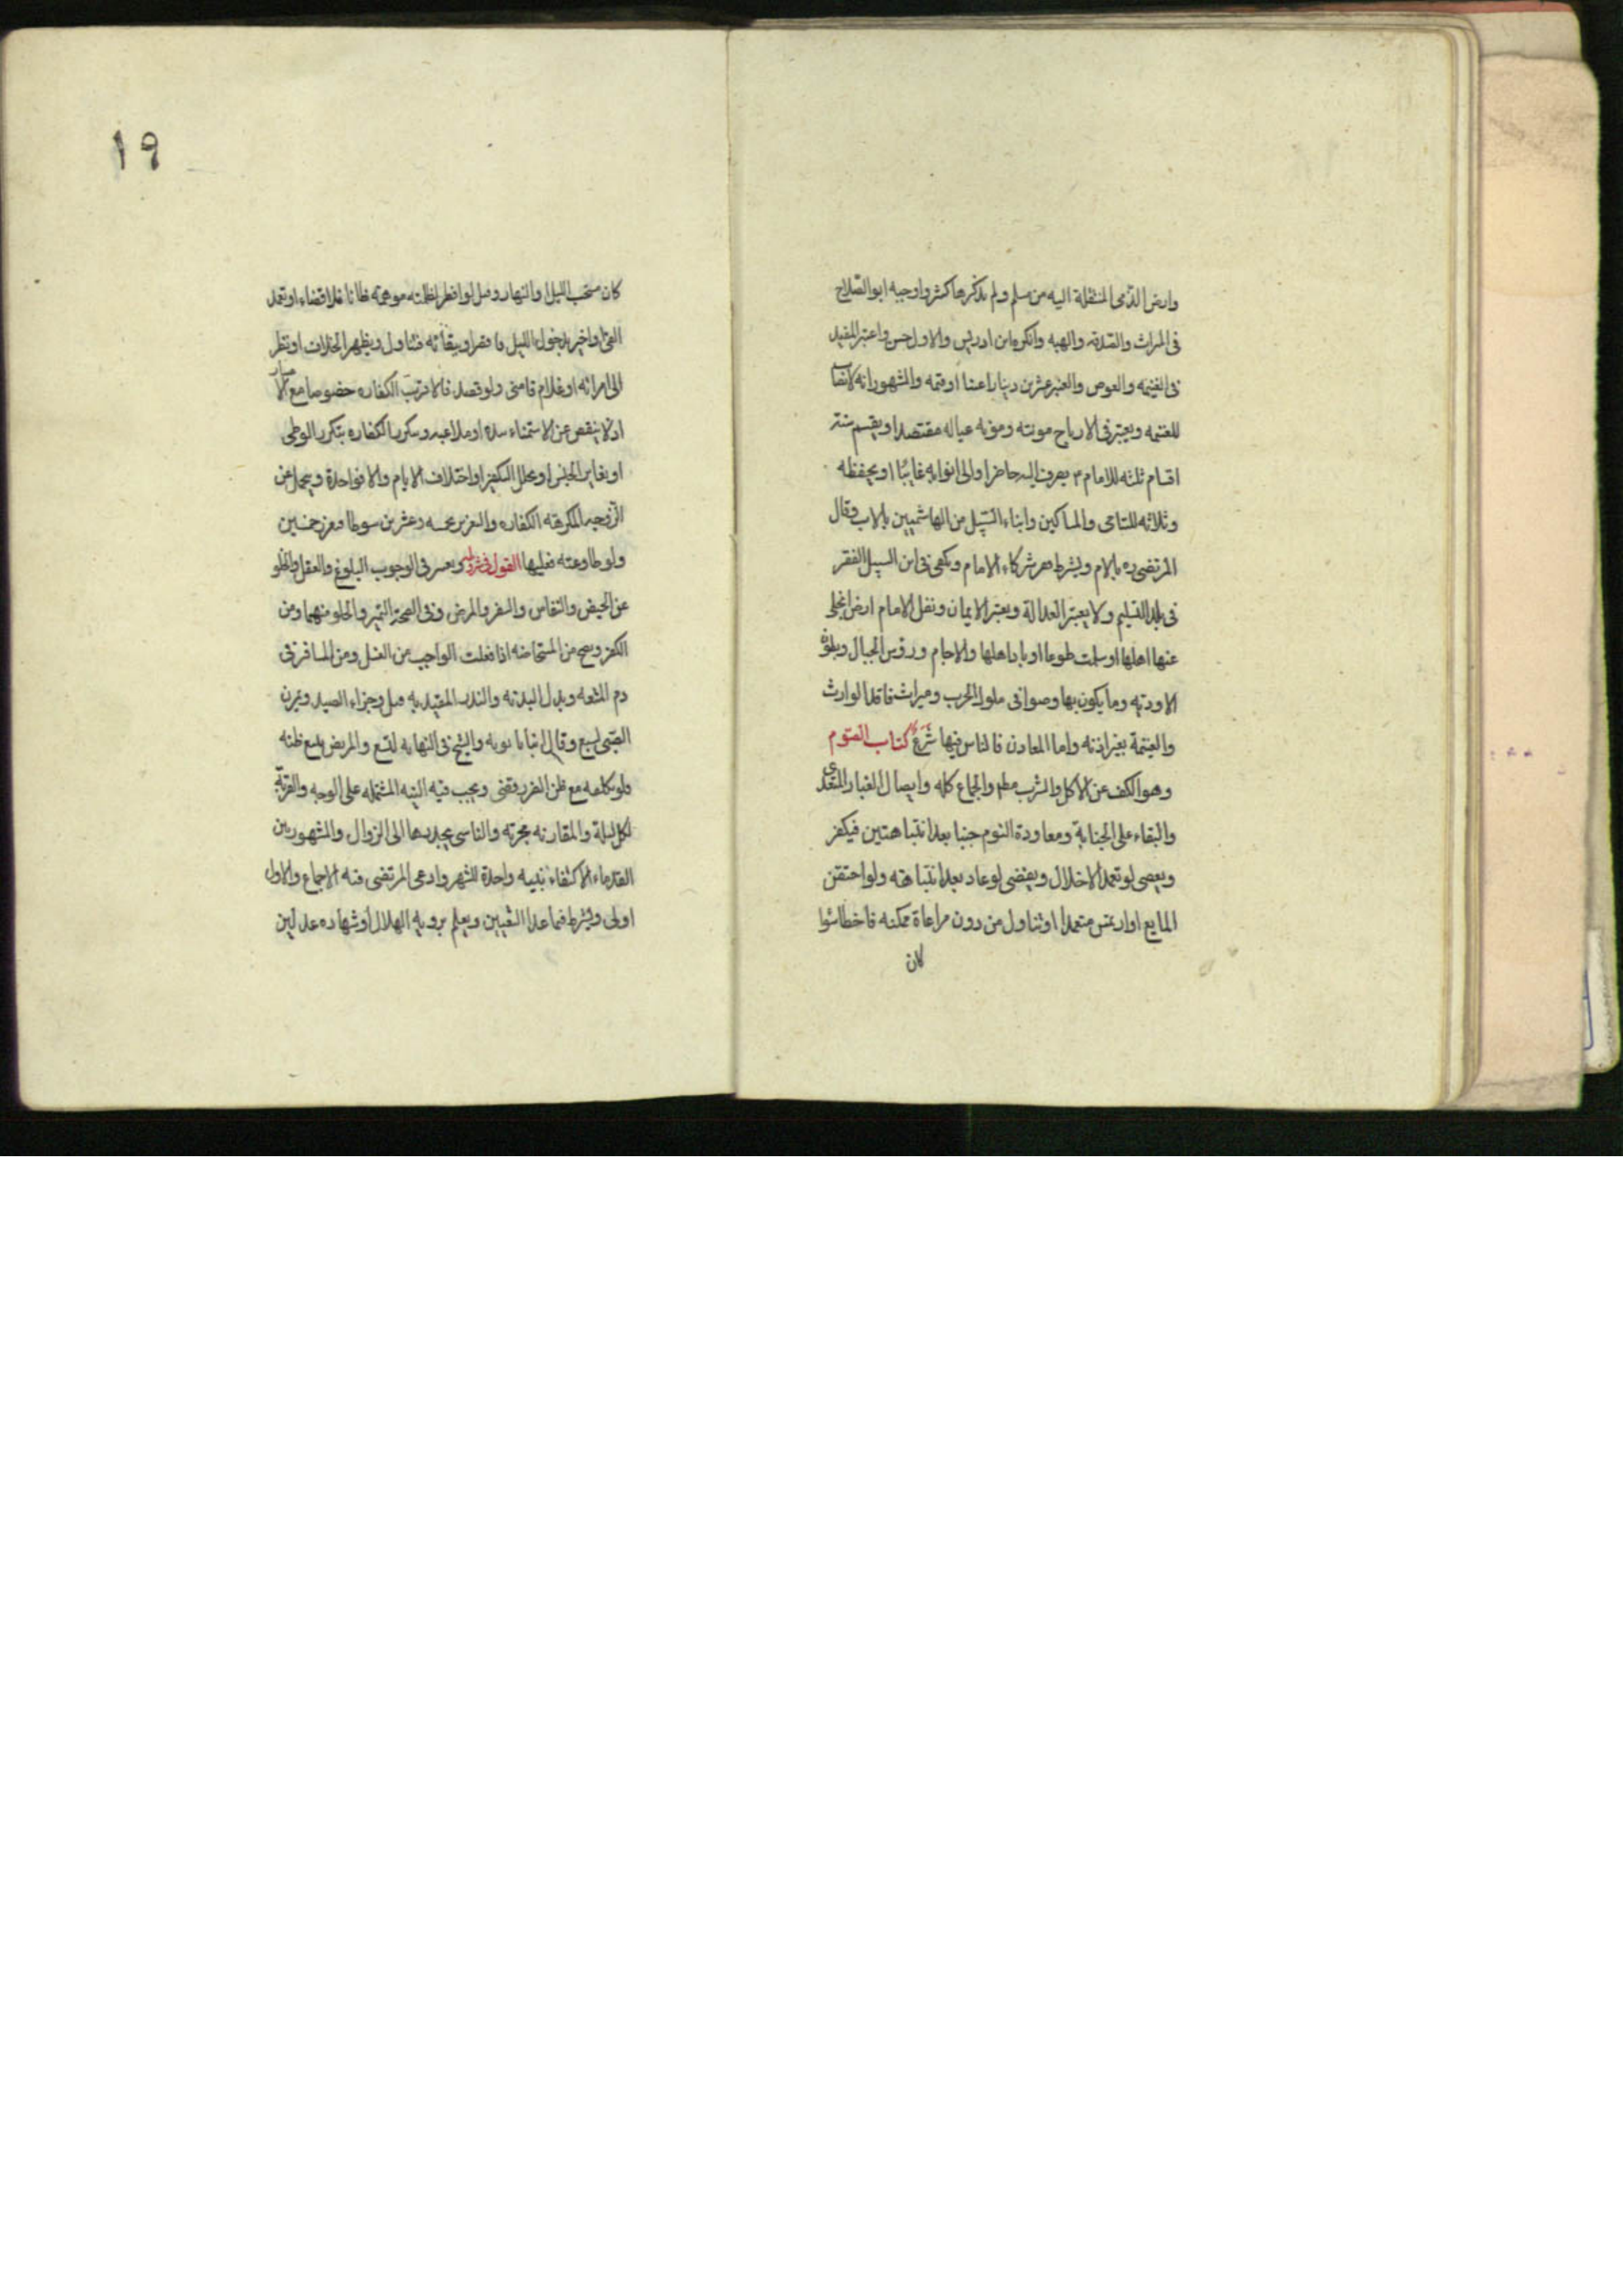 وارض الذمى المنتقلة اليه من مسلم ولم يذكرها كثير واوجبه ابو الصلاح
فى الميراث والصدقه والهبه وانكره ابن ادريس والاول احسن واعتبر المفيد
فى الغنيمه والغوص والعنبر عشرين دينارا عينا او قيمه والمشهور انه لا نصاب
للغنيمه ويعتبر فى الارباح مونته ومونه عياله مقتصدا ويقسم ستة
اقسام ثلثه للامام ع يصرف اليه حاضرا والى نوابه غايبا او يحفظه
وثلاثه لليتامى والمساكين وابناء السبيل من الهاشميين بالاب وقال
المرتضى ره بالام ويشترط فقر شركاء الامام ويكفى فى ابن السبيل الفقر
فى بلد التسليم ولا يعتبر العدالة ويعتبر الايمان ونفل الامام ارض انجلى
عنها اهلها او سلمت طوعا او باد اهلها والاجام ورؤس الجبال وبطون
الاودية وما يكون بها وصوافى ملوك الحرب وميراث فاقد الوارث
والغنيمة بغير اذنه واما المعادن فالناس فيها شرع كتاب الصوم
وهو الكف عن الاكل والشرب مطلقا والجماع كله وايصال الغبار المتعدى
والبقاء على الجنابة ومعاودة النوم جنبا بعد انتباهتين فيكفر
ويعصى لو تعمد الاخلال ويقضى لو عاد بعد انتباهته ولو احتقن
المايع او ارتمس متعمدا او تناول من دون مراعاة ممكنه فاخطا سوا
كان
١٩
كان مستصحب الليل او النهار وقيل لو افطر لظلمته موهمه ظانا فلا قضاء او تعمد
القئ او اخبر بدخول الليل فافطر او ببقائه فتناول ويظهر الخلاف او نظر
الى امراته او غلام فامنى ولو قصد فالاقرب الكفاره خصوصا مع الاعتياد
اذ لا ينقص عن الاستمناء بيده او ملاعبه وتتكرر الكفاره بتكرر الوطى
او تغاير الجنس او تخلل التكفير او اختلاف الايام والا فواحدة ويتحمل عن
الزوجه المكرهه الكفاره والتعزير بخمسه وعشرين سوطا فيعزر خمسين
ولو طاوعته فعليها القول فى شروطه ويعتبر فى الوجوب البلوغ والعقل والخلو
عن الحيض والنفاس والسفر والمرض وفى الصحة التميز والخلو منهما ومن
الكفر ويصح من المستحاضه اذا فعلت الواجب من الغسل ومن المسافر فى
دم المتعه وبدل البدنه والنذر المقيد به قيل وجزاء الصيد ويمرن
الصبى لسبع وقال ابنا بابويه والشيخ فى النهايه لتسع والمريض يتبع ظنه
فلو تكلفه مع ظن الضرر قضى ويجب فيه النيه المشتمله على الوجه والقربة
لكل ليلة والمقارنه مجزئه والناسى يجددها الى الزوال والمشهور بين
القدماء الاكتفاء بنيه واحدة للشهر وادعى المرتضى فيه الاجماع والاول
اولى ويشترط فيما عداه التعيين ويعلم بروية الهلال او شهاده عدلين